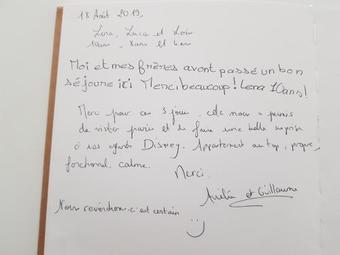 18 Août 2019,
Lena, Luca et Loïs
10ans, 8ans et
Moi et mes frières avont passé un bon
séjoure ici Merci beaucoup! Lena 10ans!
Merci pour ces 3 jours, cela nous a permis
de visiter paris et de faire une belle surprise
à nos enfants Disney. Appartement au top, propre,
fonctionnel, calme.
Merci.
Aurélie et Guillaume
Nous reviendrons c'est certain